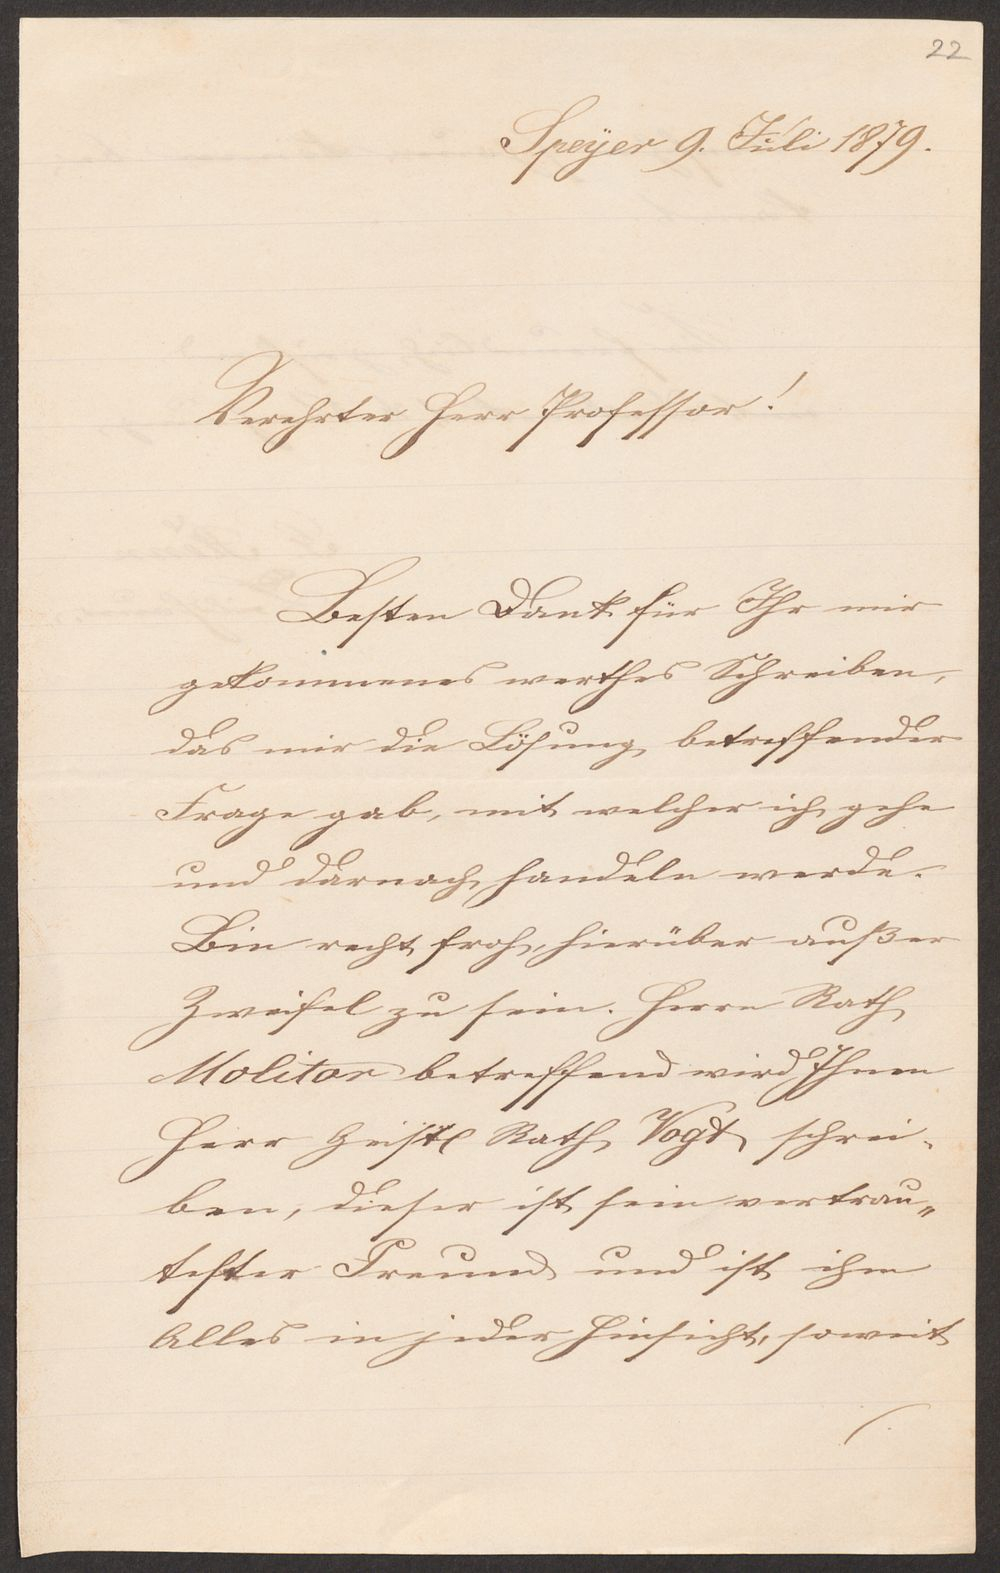 22
Speÿer 9. Juli 1879.
Verehrter Herr Professor!
Besten Dank für Ihr mir
gekommenes werthes Schreiben,
das mir die Lösung betreffender
Frage gab, mit welcher ich gehe
und darnach handeln werde.
Bin recht froh, hierüber außer
Zweifel zu sein. Herrn Rath
Molitor betreffend wird Ihnen
Herr Geistl Rath Vogt schrei-
ben, dieser ist sein vertrau„
tester Freund und ist ihm
Alles in jeder Hinsicht, soweit